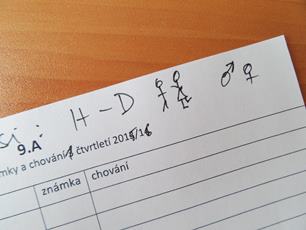 H-D ♂ ♀
9.A
mky a chování čtvrtletí 2015/16
známka chování